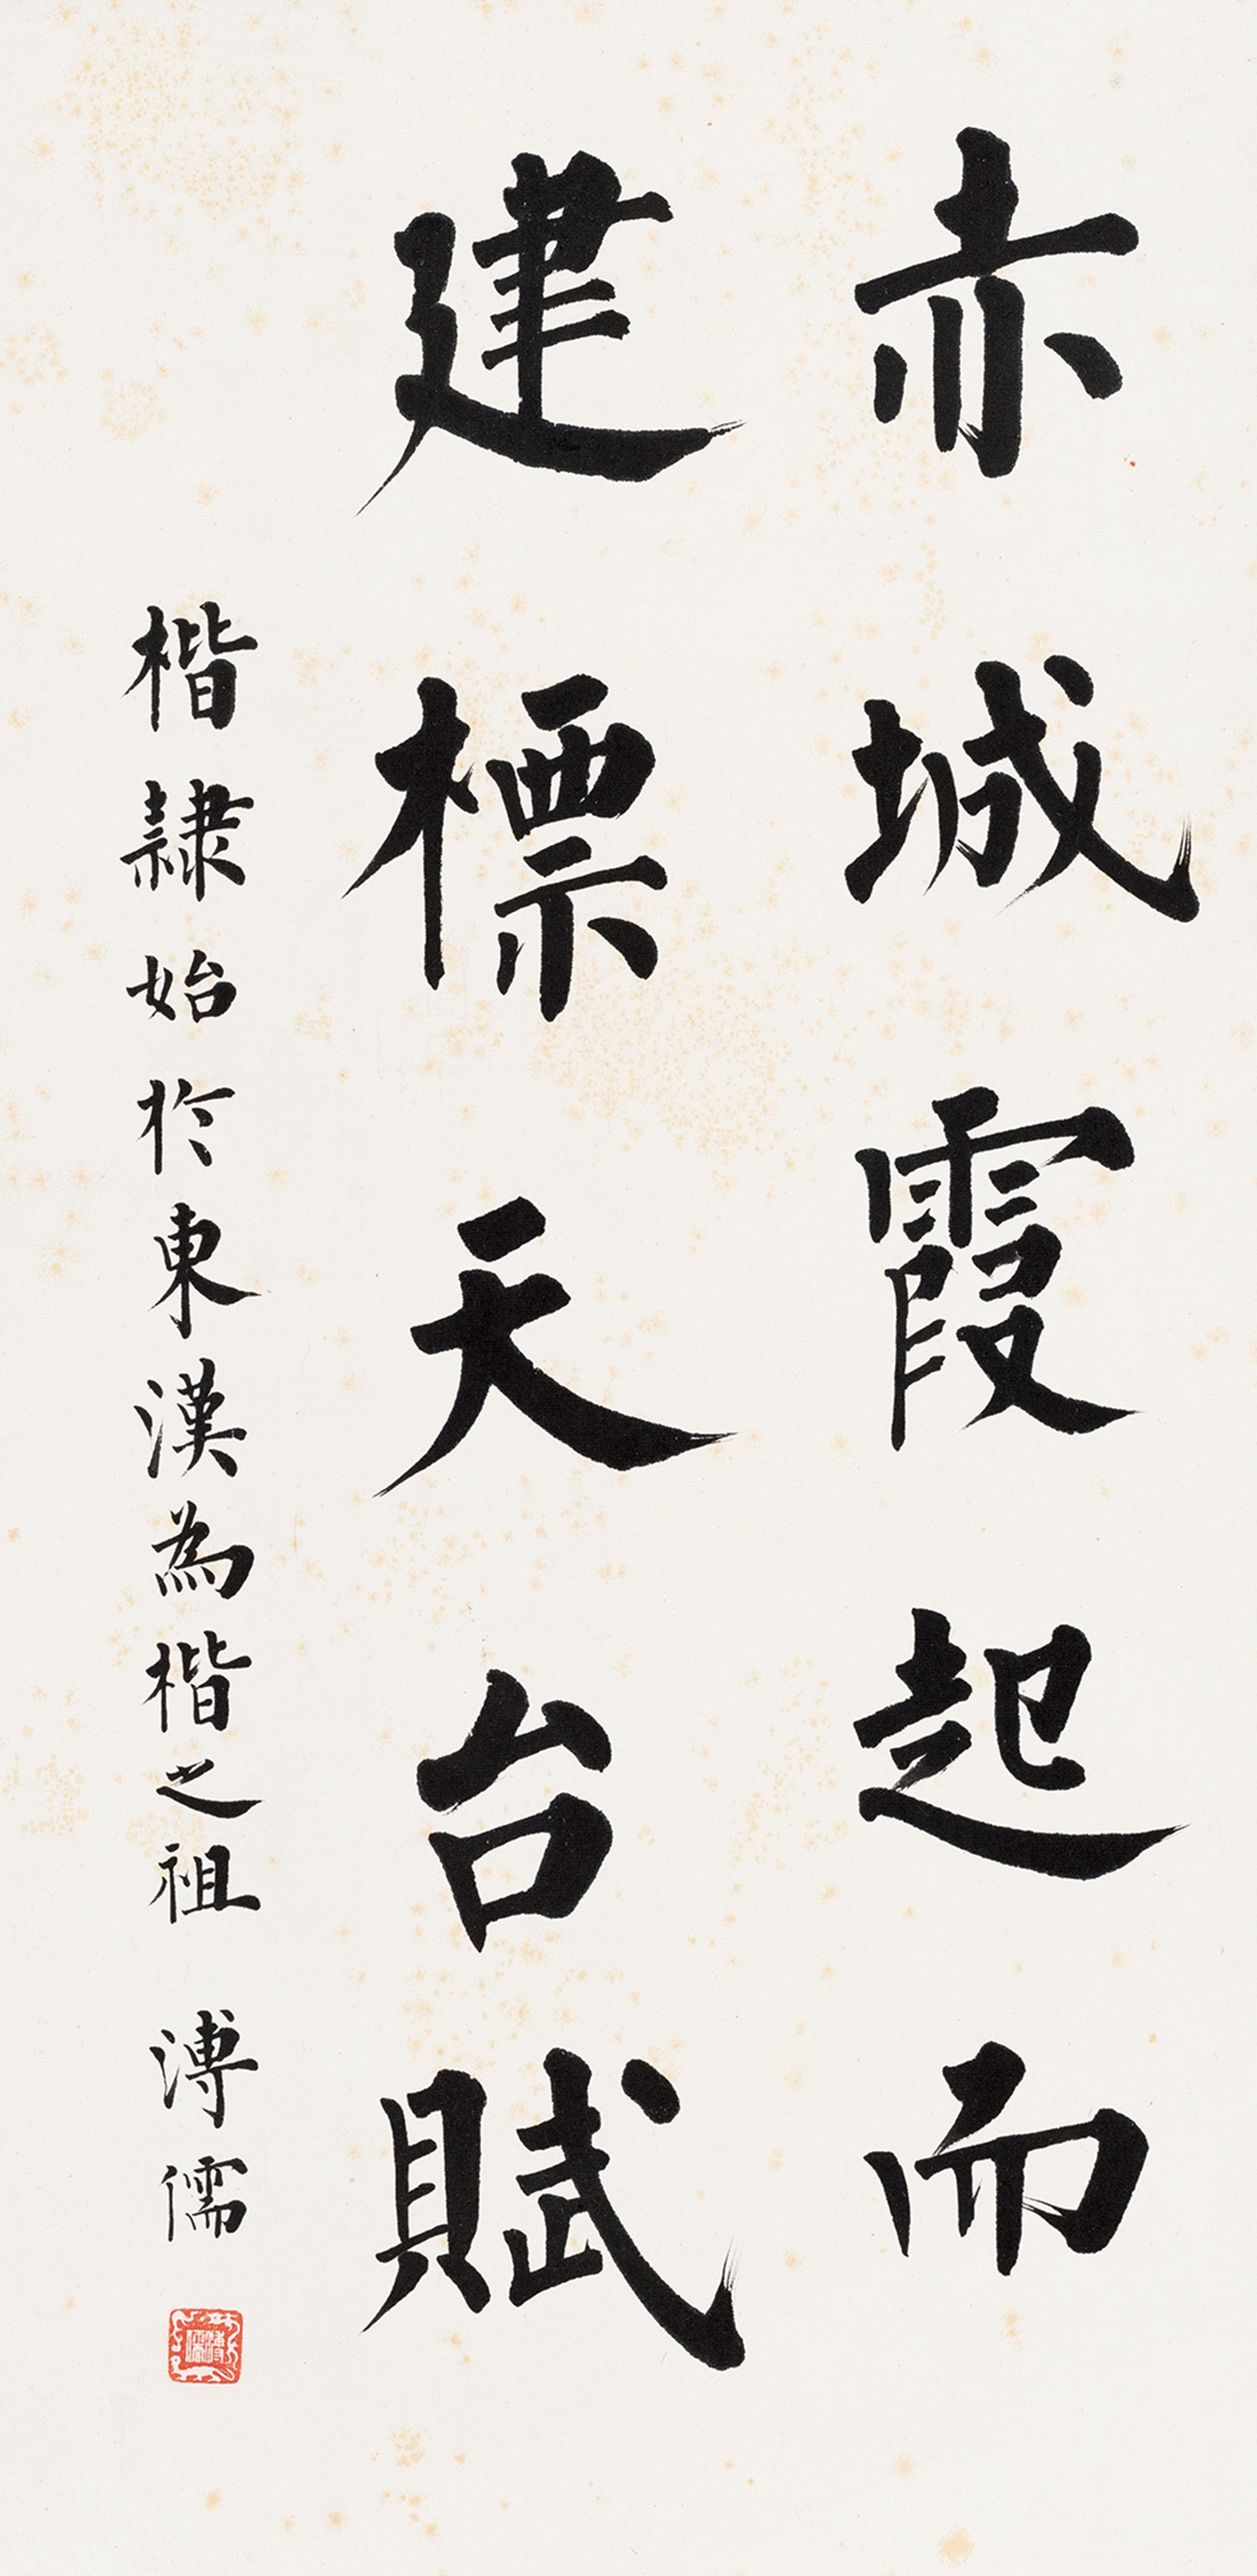 赤城霞起而
建標天台賦
楷隸始於東漢為楷之祖 溥儒
溥儒